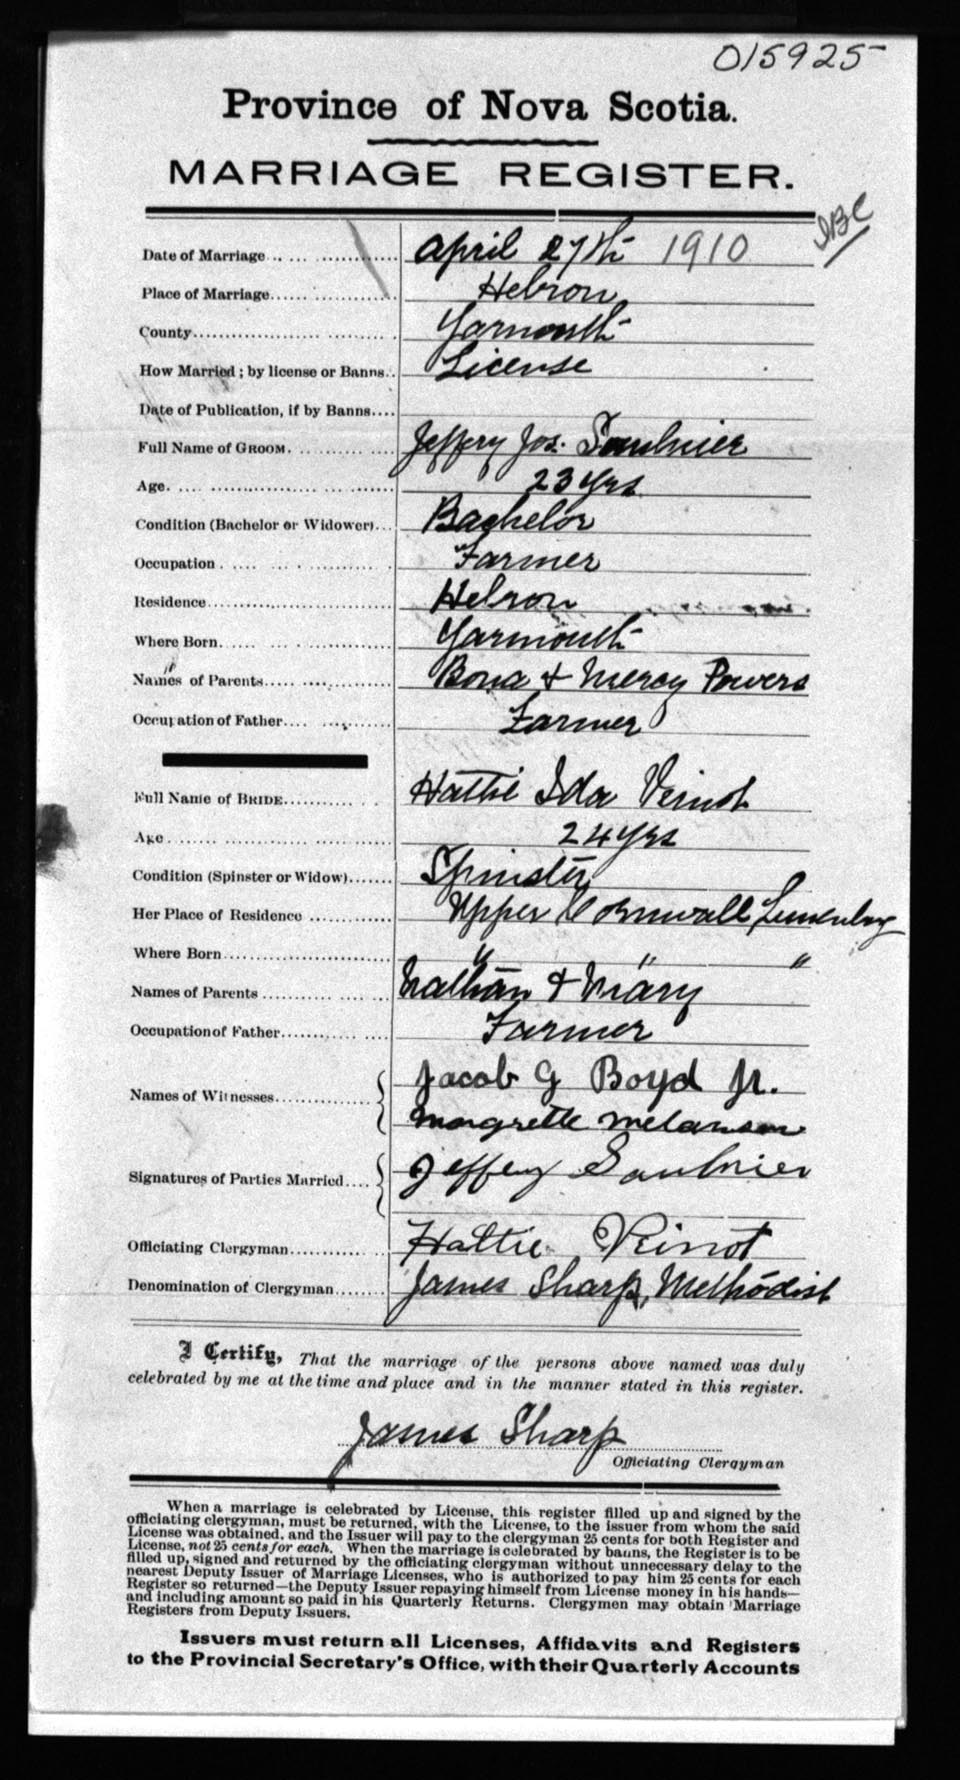 015925
Province of Nova Scotia.
MARRIAGE REGISTER.
Date of Marriage April 27th 1910
Place of Marriage Hebron
County Yarmouth
How Married ; by license or Banns License
Date of Publication, if by Banns
Full Name of GROOM. Jeffery Jos. Saulnier
Age. 23 yrs
Condition (Bachelor or Widower) Bachelor
Occupation Farmer
Residence Hebron
Where Born Yarmouth
Names of Parents Bona & Mercy Powers
Occupation of Father Farmer
Full Name of BRIDE Hattie Ida Veinot
Age 24 yrs
Condition (Spinster or Widow) Spinster
Her Place of Residence Upper Cornwall Lunenburg
Where Born " " "
Names of Parents Nathan & Mary
Occupation of Father Farmer
Names of Witnesses Jacob G Boyd Jr.
Margrette Melanson
Signatures of Parties Married Jeffery Saulnier
Officiating Clergyman Hattie Veinot
Denomination of Clergyman James Sharp, Methodist
I Certify, That the marriage of the persons above named was duly
celebrated by me at the time and place and in the manner stated in this register.
James Sharp
Officiating Clergyman
When a marriage is celebrated by License, this register filled up and signed by the
officiating clergyman, must be returned, with the License, to the issuer from whom the said
License was obtained, and the Issuer will pay to the clergyman 25 cents for both Register and
License, not 25 cents for each. When the marriage is celebrated by banns, the Register is to be
filled up, signed and returned by the officiating clergyman without unnecessary delay to the
nearest Deputy Issuer of Marriage Licenses, who is authorized to pay him 25 cents for each
Register so returned—the Deputy Issuer repaying himself from License money in his hands—
and including amount so paid in his Quarterly Returns. Clergymen may obtain Marriage
Registers from Deputy Issuers.
Issuers must return all Licenses, Affidavits and Registers
to the Provincial Secretary's Office, with their Quarterly Accounts